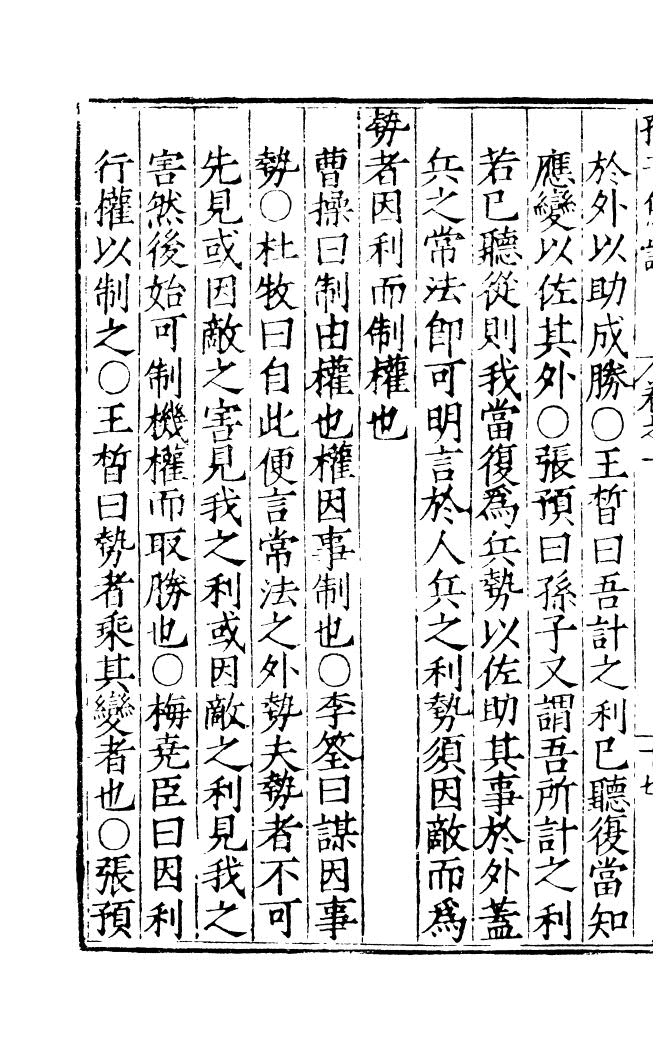 於外以助成勝○王晳曰吾計之利已聽復當知
應變以佐其外○張預曰孫子又謂吾所計之利
若已聽從則我當復爲兵勢以佐助其事於外蓋
兵之常法卽可明言於人兵之利勢須因敵而爲
勢者因利而制權也
曹操曰制由權也權因事制也○李筌曰謀因事
勢○杜牧曰自此便言常法之外勢夫勢者不可
先見或因敵之害見我之利或因敵之利見我之
害然後始可制機權而取勝也○梅堯臣曰因利
行權以制之○王晳曰勢者乘其變者也○張預